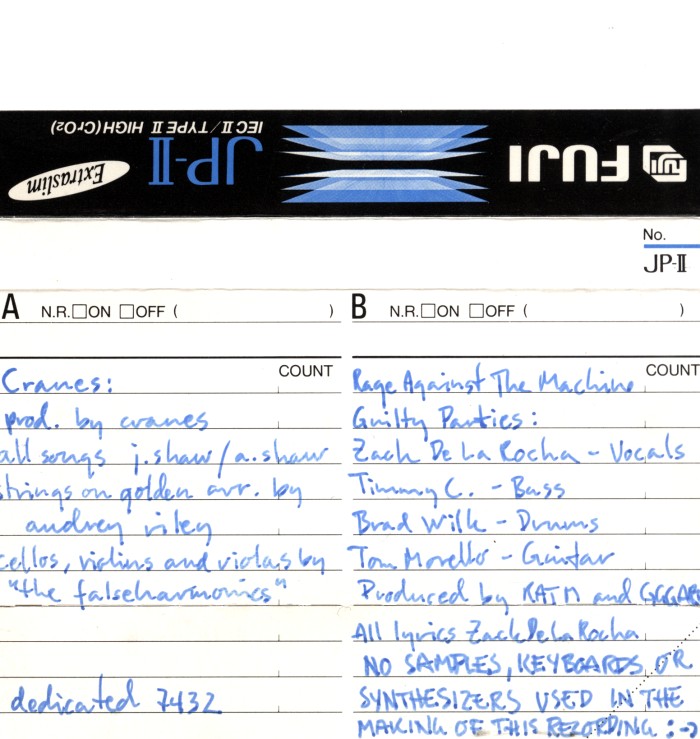 FUJI
JP-II
IEC II/TYPE II HIGH(CrO2)
Extraslim
No.
JP-II
A N.R.☐ON ☐OFF ( )
COUNT
Cranes:
prod. by cranes
all songs j.shaw/a.shaw
strings on golden arr. by
audrey riley
cellos, violins and violas by
"the falseharmonics"
dedicated 7432
B N.R.☐ON ☐OFF ( )
COUNT
Rage Against The Machine
Guilty Parties:
Zack De La Rocha - Vocals
Timmy C. - Bass
Brad Wilk - Drums
Tom Morello - Guitar
Produced by RATM and GGGAR
All lyrics Zack De La Rocha
NO SAMPLES, KEYBOARDS OR
SYNTHESIZERS USED IN THE
MAKING OF THIS RECORDING :->